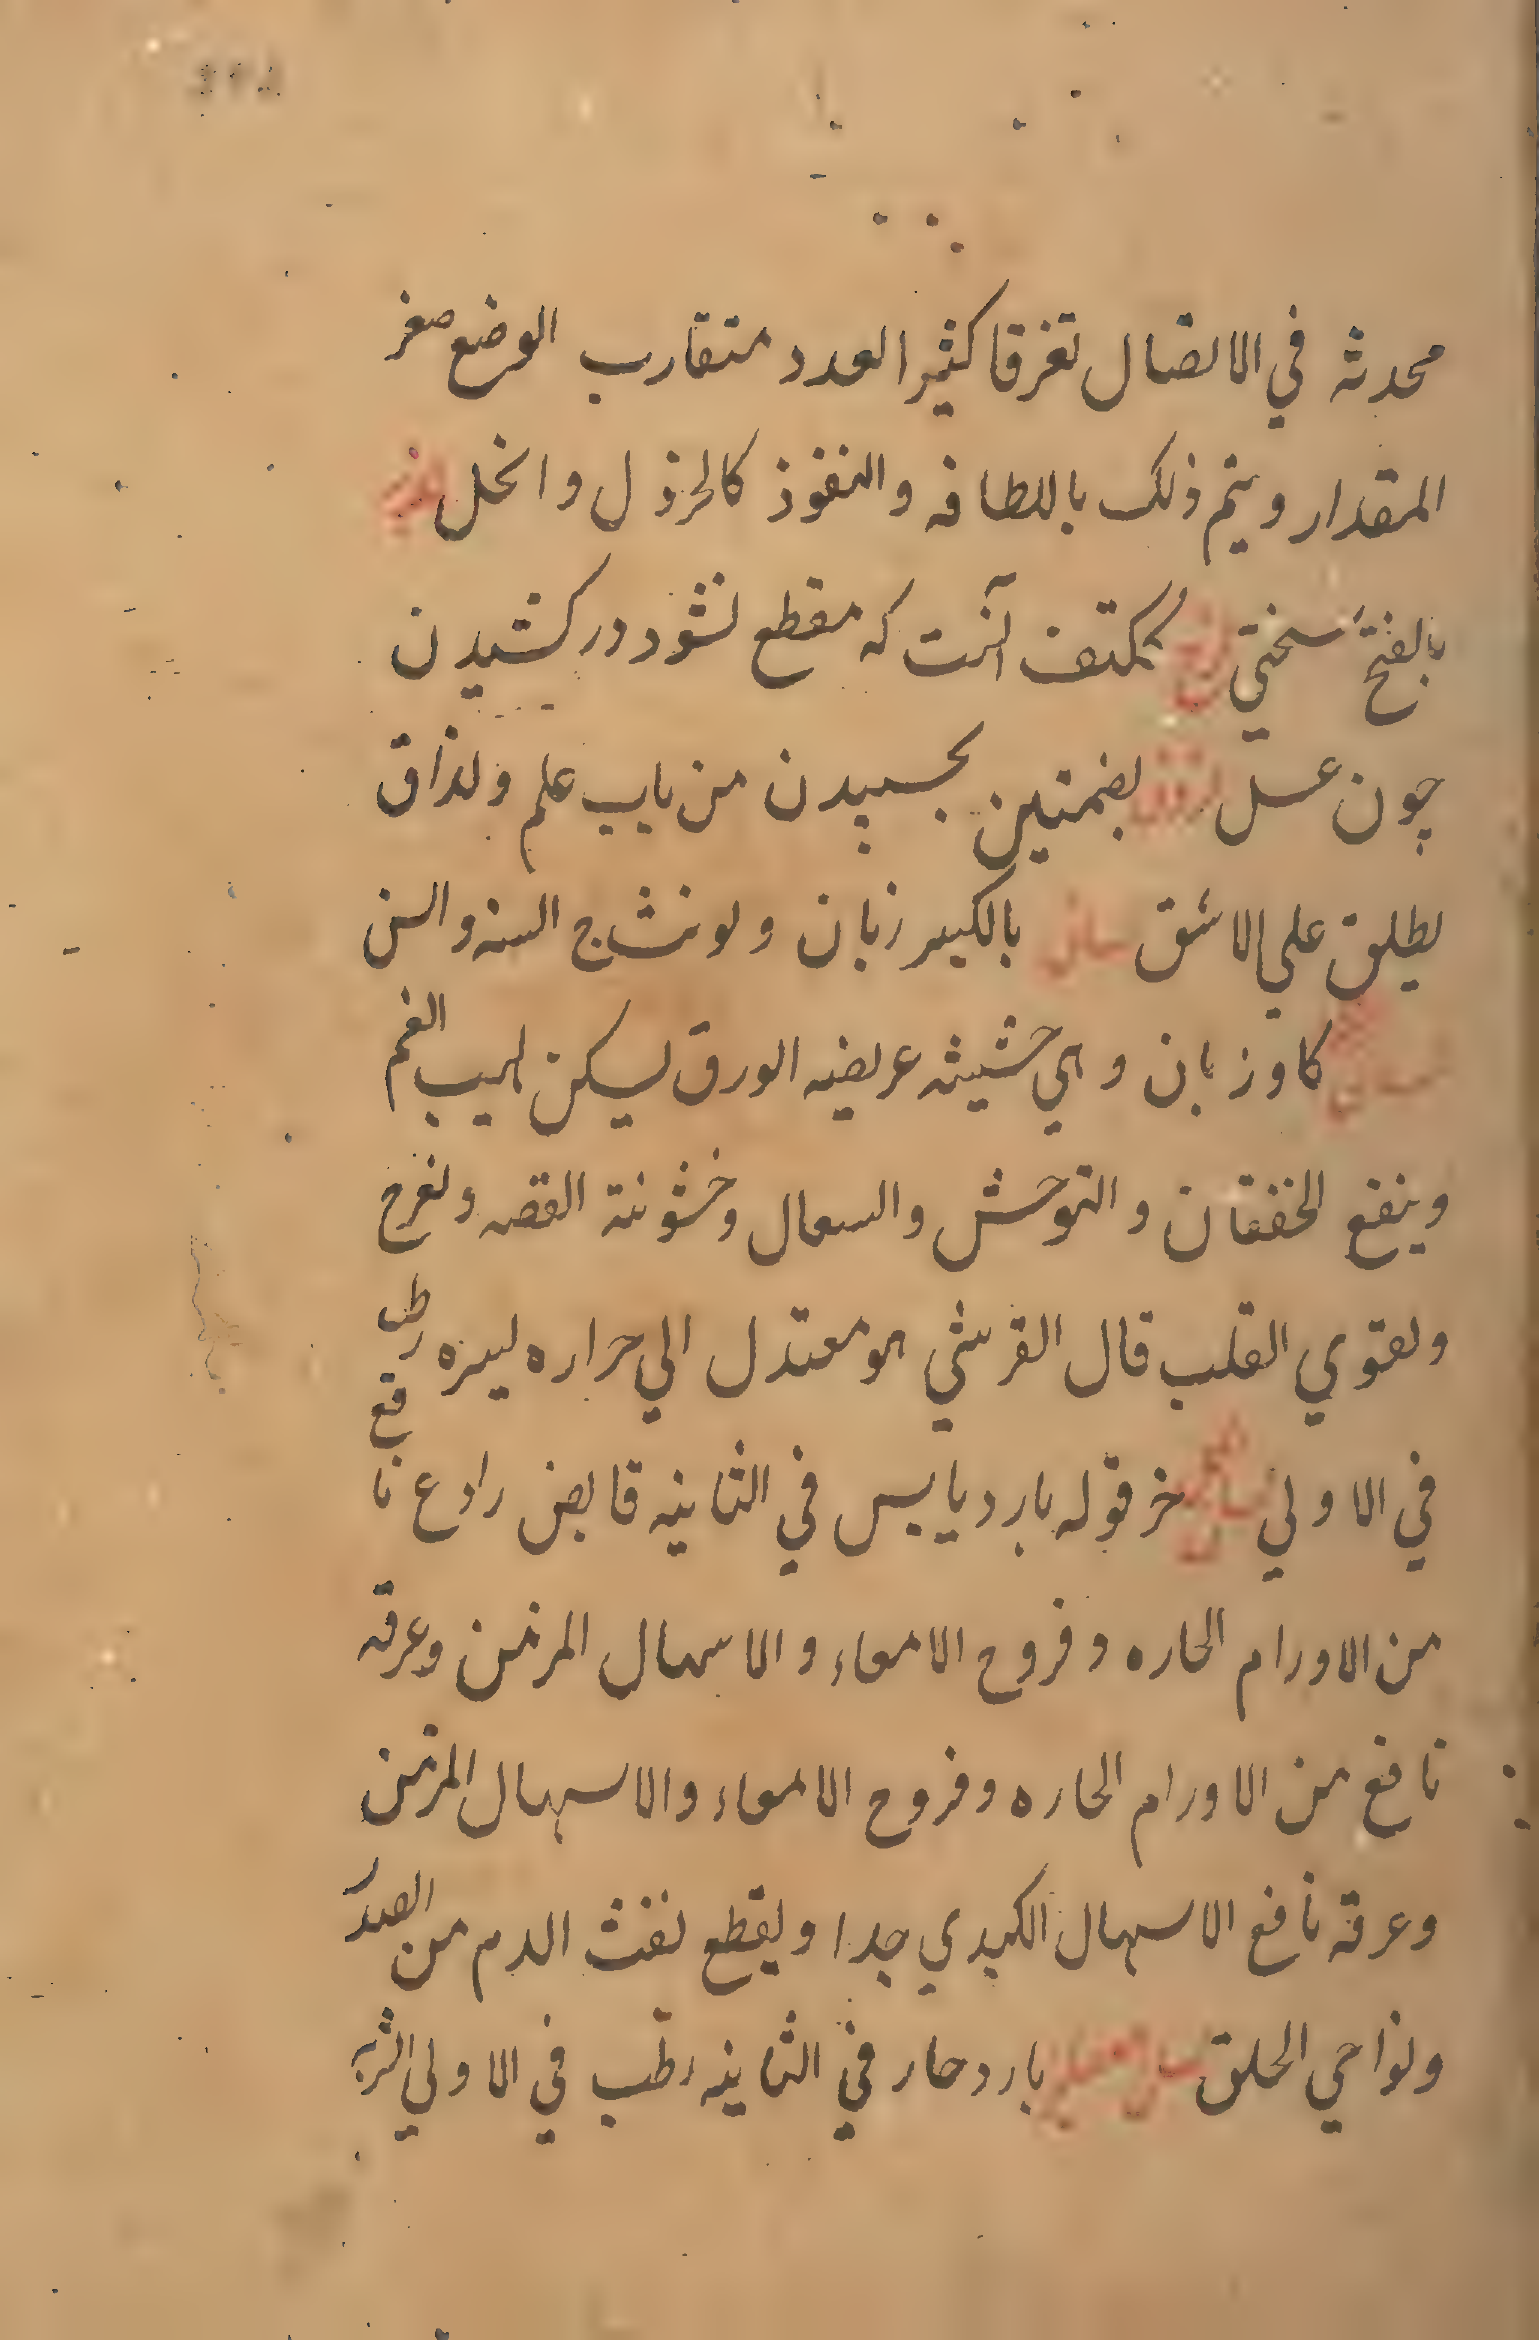 محدثه في الاتصال تفرقا كثير العدد متقارب الوضع صغر
المقدار ويتم ذلك باللطافه والنفوذ كالخردل والخل
بالفتح سختي لزج كمكتف آنست كه مقطع نشود در كشيدن
چون عسل لزوق بضمتين بچسپيدن من باب علم ولذاق
يطلق علي الاشق لسان بالكسر زبان ويونث ج السنه والسن
لسان كاوزبان وهي حشيشه عريضه الورق يسكن لهيب الفم
وينفع الخفقان والتوحش والسعال وخشونة القصبه ويفرح
ويقوي القلب قال القرشي هو معتدل الي حراره يسيره رطب
في الاولي لسان الحمل خرقوله بارد يابس في الثانيه قابض رادع نافع
من الاورام الحاره وقروح الامعاء والاسهال المزمن وعرقه
نافع من الاورام الحاره وقروح الامعاء والاسهال المزمن
وعرقه نافع الاسهال الكبدي جدا ويقطع نفث الدم من الصدر
ونواحي الحلق لسان بارد حار في الثانيه رطب في الاولي الشربه